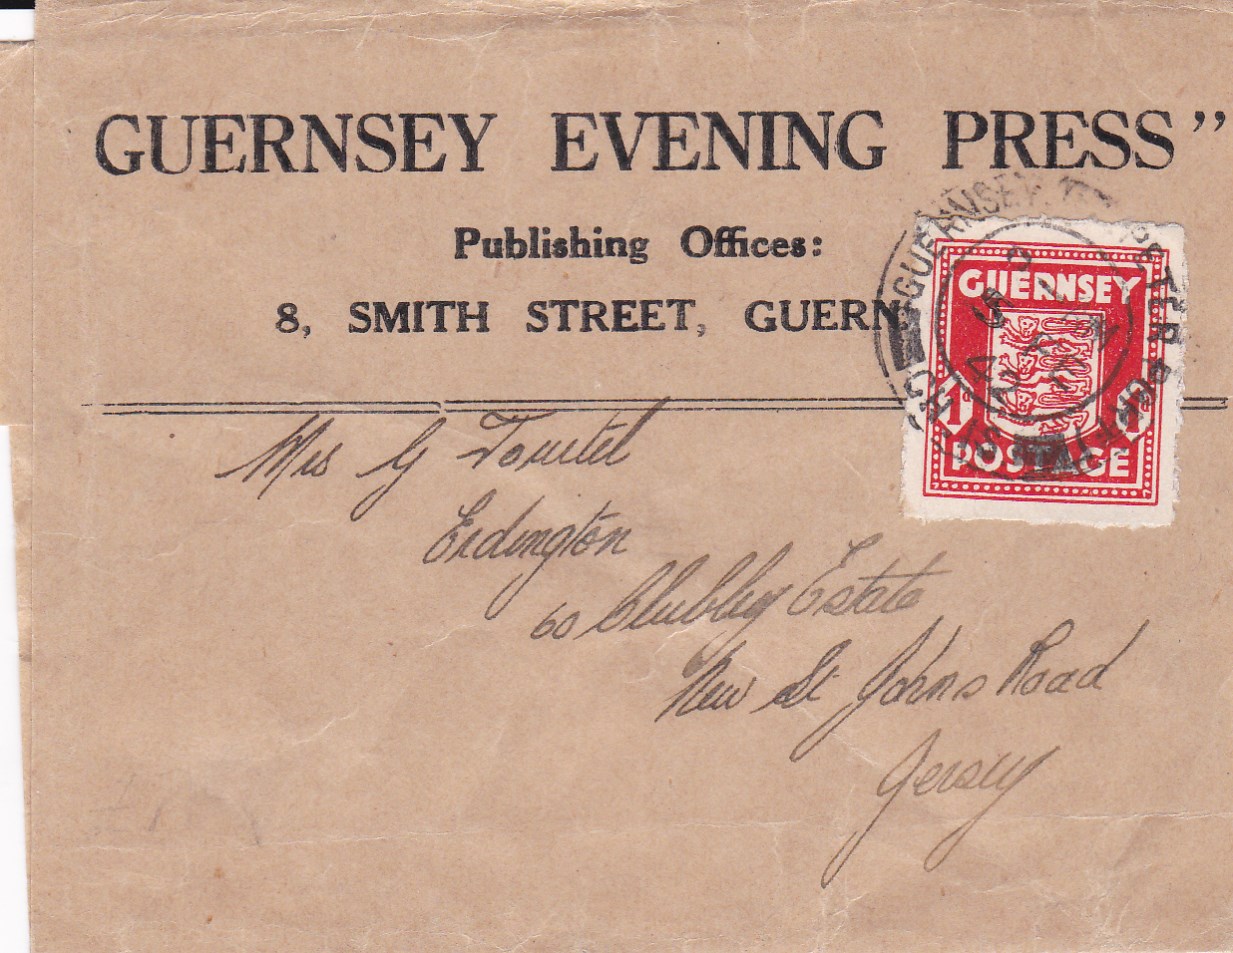 GUERNSEY EVENING PRESS”
Publishing Offices:
8, SMITH STREET, GUERN
GUERNSEY PETER PORT ST
GUERNSEY
1D 1D
POSTAGE
Mrs G Tourtel
Erdington
60 Clubley Estate
New St Johns Road
Jersey